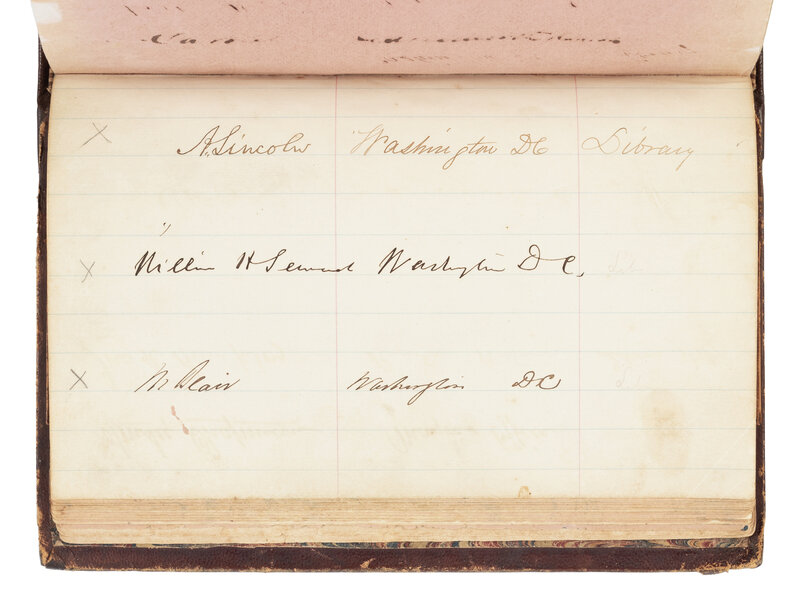 A. Lincoln Washington DC Library
William H Seward Washington D C.
M Blair Washington DC